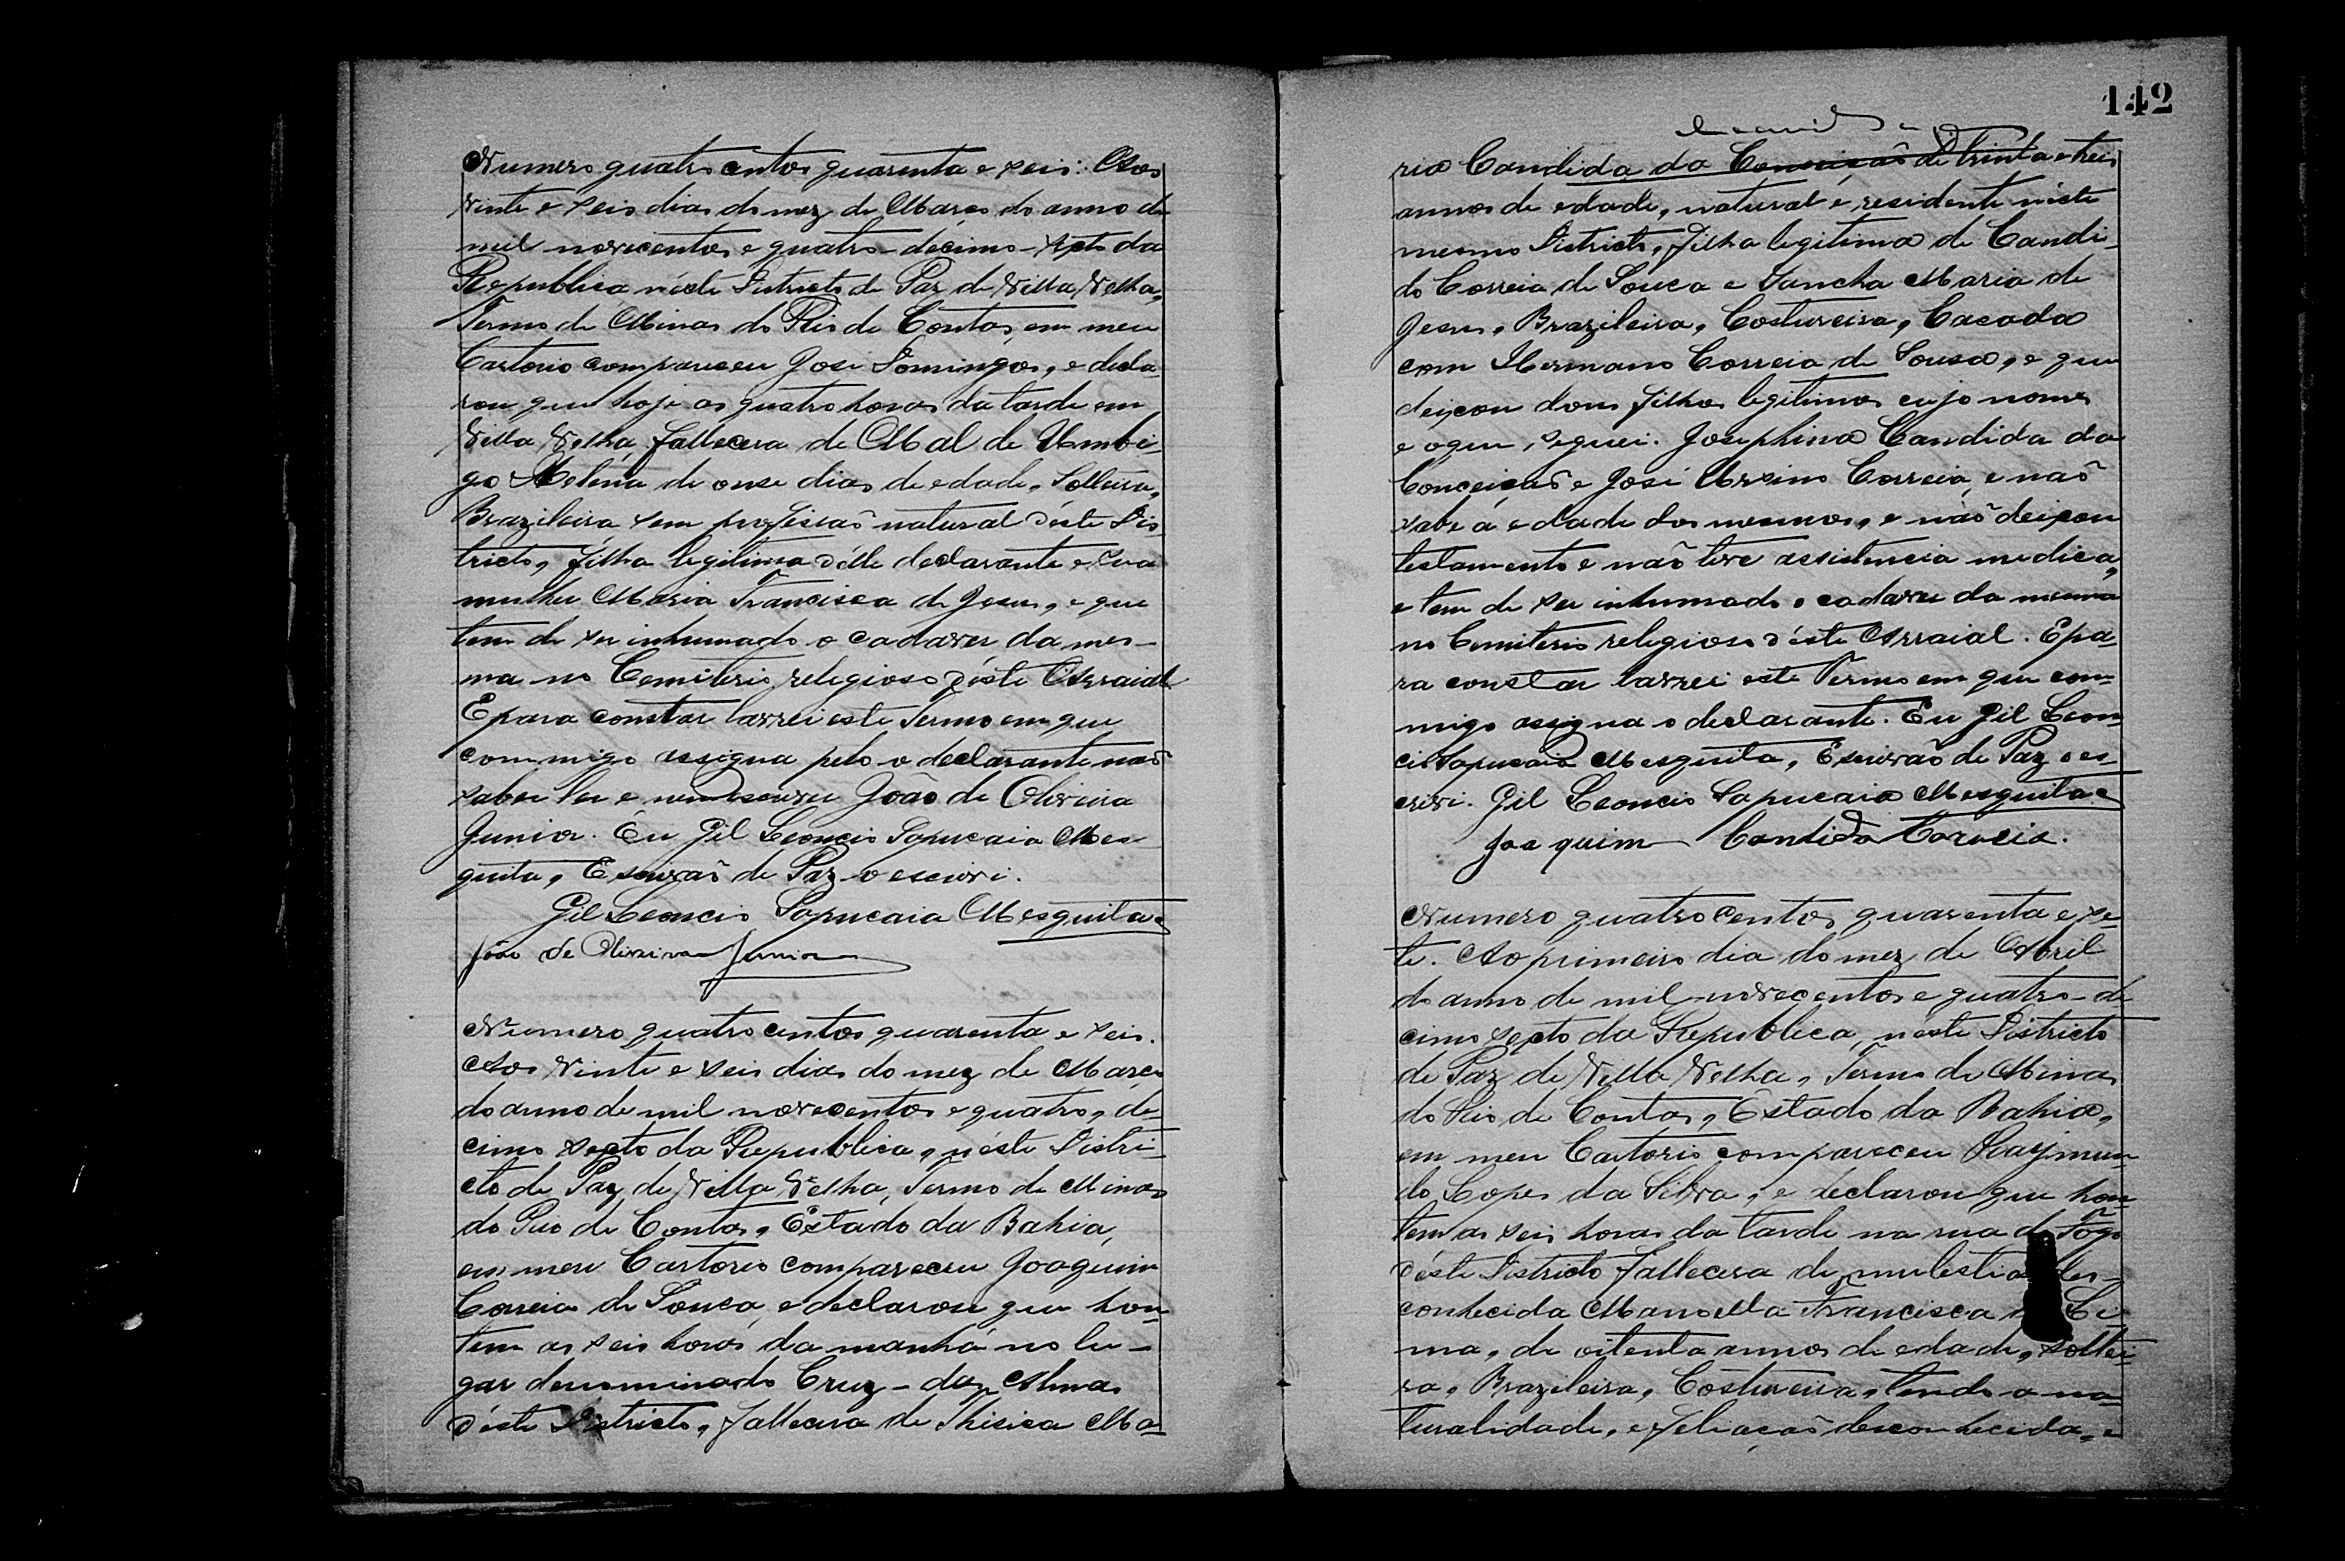 Numero quatro centos quarenta e seis: Aos
vinte e seis dias do mez de Março do anno de
mil novecentos e quatro-decimo-sexto da
Republica, néste Districto de Paz de Villa Velha,
Termo de Minas do Rio de Contas, em meu
Cartorio compareceu José Domingos, e decla-
rou que hoje as quatro horas da tarde em
Villa Velha, fallecera de Mal de Umbi-
go Helena de onze dias de edade, Solteira,
Brazileira sem profissaõ natural déste Dis
tricto, filha legitima délle declarante e sua
mulher Maria Francisca de Jesus, e que
tem de ser inhumado o cadaver da mes-
ma no Cemiterio religioso déste Arraial
E para constar lavrei este Termo em que
commigo assigna pelo o declarante naõ
saber ler e nem escrever João de Oliveira
Junior. Eu Gil Leoncio Sapucaia Mes-
quita, Escrivaõ de Paz o escrivi.
Gil Leoncio Sapucaia Mesquita
João de Oliveira Junior
Numero quatro centos quarenta e seis.
Aos vinte e seis dias do mez de Março
do anno de mil novecentos e quatro, de-
cimo sexto da Republica, néste Distri-
cto de Paz de Villa Velha, Termo de Minas
do Rio de Contas, Estado da Bahia,
em meu Cartorio compareceu Joaquim
Correia de Souca, e declarou que hon-
tem as seis horas da manhã no lu-
gar denominado Cruz-das Almas
déste Districto, fallecera de Thisica Ma-
142
ria Candida da Conceiçaõ de trinta e treis
annos de edade, natural e residente néste
mesmo Districto, filha legitima de Candi-
do Correia de Souca e Sancha Maria de
Jesus, Brazileira, Costureira, Cacada
com Hermano Correia de Sousa, e que
deixou dous filhos legitimos cujo nomes
e o que seguei. Josephina Candida da
Conceiçaõ e José Ursino Correia, e naõ
sabe á edade dos mesmos, e naõ deixou
testamento e naõ teve assistencia medica,
e tem de ser inhumado o cadaver da mesma
no Cemiterio religioso déste Arraial. E pa-
ra constar lavrei este Termo em que com-
migo assigna o declarante. Eu Gil Leon-
cio Sapucaia Mesquita, Escrivão de Paz o es-
crivi. Gil Leoncio Sapucaia Mesquita
Joaquim Candido Correia.
Numero quatro centos quarenta e se-
te. Ao primeiro dia do mez de Abril
do anno de mil novecentos e quatro-de
cimo sexto da Republica, néste Districto
de Paz de Villa Velha, Termo de Minas
do Rio de Contas, Estado da Bahia,
em meu Cartorio compareceu Raymun-
do Lopes da Silva, e declarou que hon-
tem as seis horas da tarde na rua do Fôgo
déste Districto fallecera de mulestia des-
conhecida Manoella Francisca Li-
ma, de oitenta annos de edade, soltei-
ra, Brazileira, Costureira, tendo a na-
turalidade, e filiaçaõ desconhecida, e